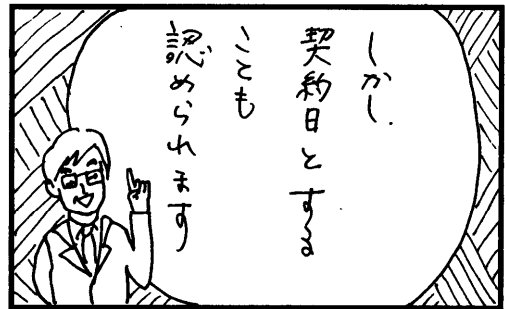 しかし、
契約日とする
ことも
認められます